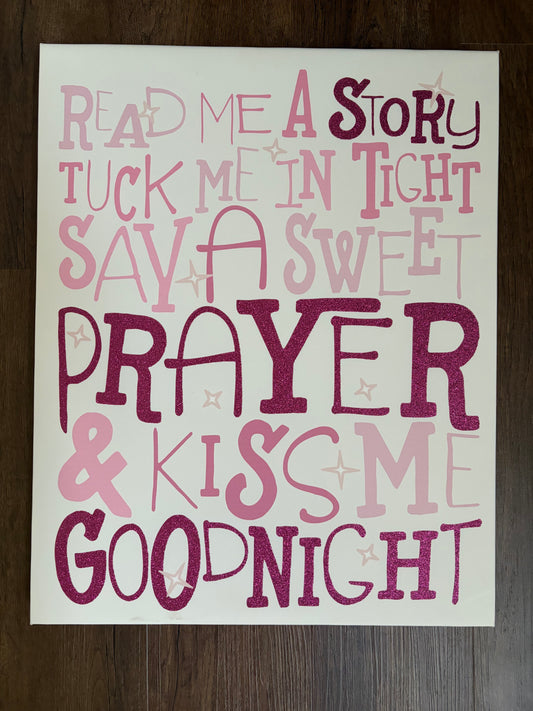 READ ME A STORY
TUCK ME IN TIGHT
SAY A SWEET
PRAYER
& KISS ME
GOODNIGHT